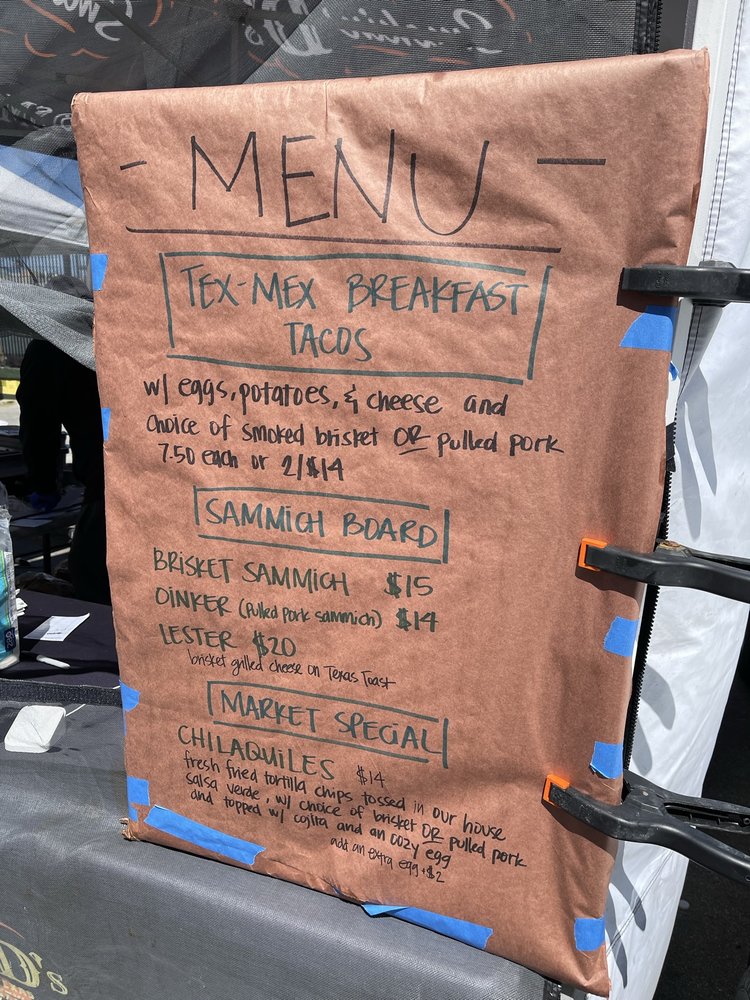 - MENU -
TEX-MEX BREAKFAST
TACOS
w/ eggs, potatoes, & cheese and
choice of smoked brisket OR pulled pork
7.50 each or 2/$14
SAMMICH BOARD
BRISKET SAMMICH $15
OINKER (pulled pork sammich) $14
LESTER $20
brisket grilled cheese on Texas Toast
MARKET SPECIAL
CHILAQUILES $14
fresh fried tortilla chips tossed in our house
salsa verde, w/ choice of brisket OR pulled pork
and topped w/ cojita and an oozy egg
add an extra egg +$2
D's